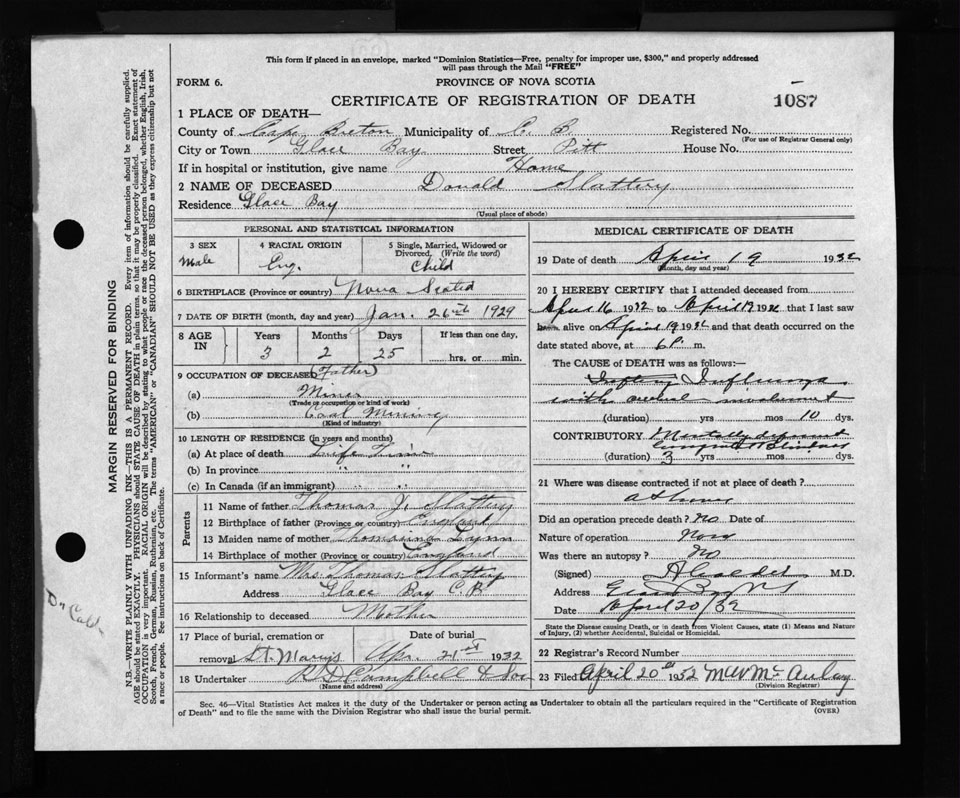 This form if placed in an envelope, marked "Dominion Statistics—Free, penalty for improper use, $300," and properly addressed
will pass through the Mail "FREE"
FORM 6. PROVINCE OF NOVA SCOTIA
CERTIFICATE OF REGISTRATION OF DEATH 1087
1 PLACE OF DEATH—
County of Cape Breton Municipality of C. B. Registered No.
(For use of Registrar General only)
City or Town Glace Bay Street Pitt House No.
If in hospital or institution, give name Home
2 NAME OF DECEASED Donald Slattery
Residence Glace Bay
(Usual place of abode)
PERSONAL AND STATISTICAL INFORMATION
3 SEX 4 RACIAL ORIGIN 5 Single, Married, Widowed or
Divorced. (Write the word)
Male Eng. Child
6 BIRTHPLACE (Province or country) Nova Scotia
7 DATE OF BIRTH (month, day and year) Jan. 26th 1929
8 AGE IN Years Months Days If less than one day,
3 2 25 hrs. or min.
9 OCCUPATION OF DECEASED (Father)
(a) Miner
(Trade or occupation or kind of work)
(b) Coal Mining
(Kind of industry)
10 LENGTH OF RESIDENCE (in years and months)
(a) At place of death Life Time
(b) In province " "
(c) In Canada (if an immigrant) " "
Parents
11 Name of father Thomas J. Slattery
12 Birthplace of father (Province or country) England
13 Maiden name of mother Thomasina Lynn
14 Birthplace of mother (Province or country) England
15 Informant's name Mrs. Thomas Slattery
Address Glace Bay C. B.
16 Relationship to deceased Mother
17 Place of burial, cremation or Date of burial
removal St. Marys Apr. 21st 1932
18 Undertaker Campbell & Son
(Name and address)
MEDICAL CERTIFICATE OF DEATH
19 Date of death April 19 1932
(Month, day and year)
20 I HEREBY CERTIFY that I attended deceased from
April 16 1932 to April 19 1932 that I last saw
him alive on April 19 1932 and that death occurred on the
date stated above, at 6 P. m.
The CAUSE of DEATH was as follows:—
Influenza
with involvement
(duration) yrs mos 10 dys.
CONTRIBUTORY. Mentally
(duration) 3 yrs mos dys.
21 Where was disease contracted if not at place of death?
at home
Did an operation precede death? No Date of
Nature of operation None
Was there an autopsy? No
(Signed) M.D.
Address Glace Bay NS
Date April 20/32
State the Disease causing Death, or in death from Violent Causes, state (1) Means and Nature
of Injury, (2) whether Accidental, Suicidal or Homicidal.
22 Registrar's Record Number
23 Filed April 20th 1932 McAulay
(Division Registrar)
Sec. 46—Vital Statistics Act makes it the duty of the Undertaker or person acting as Undertaker to obtain all the particulars required in the "Certificate of Registration
of Death" and to file the same with the Division Registrar who shall issue the burial permit. (OVER)
MARGIN RESERVED FOR BINDING
N.B.—WRITE PLAINLY WITH UNFADING INK—THIS IS A PERMANENT RECORD. Every item of information should be carefully supplied.
AGE should be stated EXACTLY. PHYSICIANS should STATE CAUSE OF DEATH in plain terms, so that it may be properly classified. Exact statement of
OCCUPATION is very important. RACIAL ORIGIN will be described by stating to what people or race the deceased person belonged, whether English, Irish,
Scotch, French, German, Russian, Ruthenian, etc. The terms "AMERICAN" or "CANADIAN" SHOULD NOT BE USED as they express citizenship but not
a race or people. See instructions on back of Certificate.